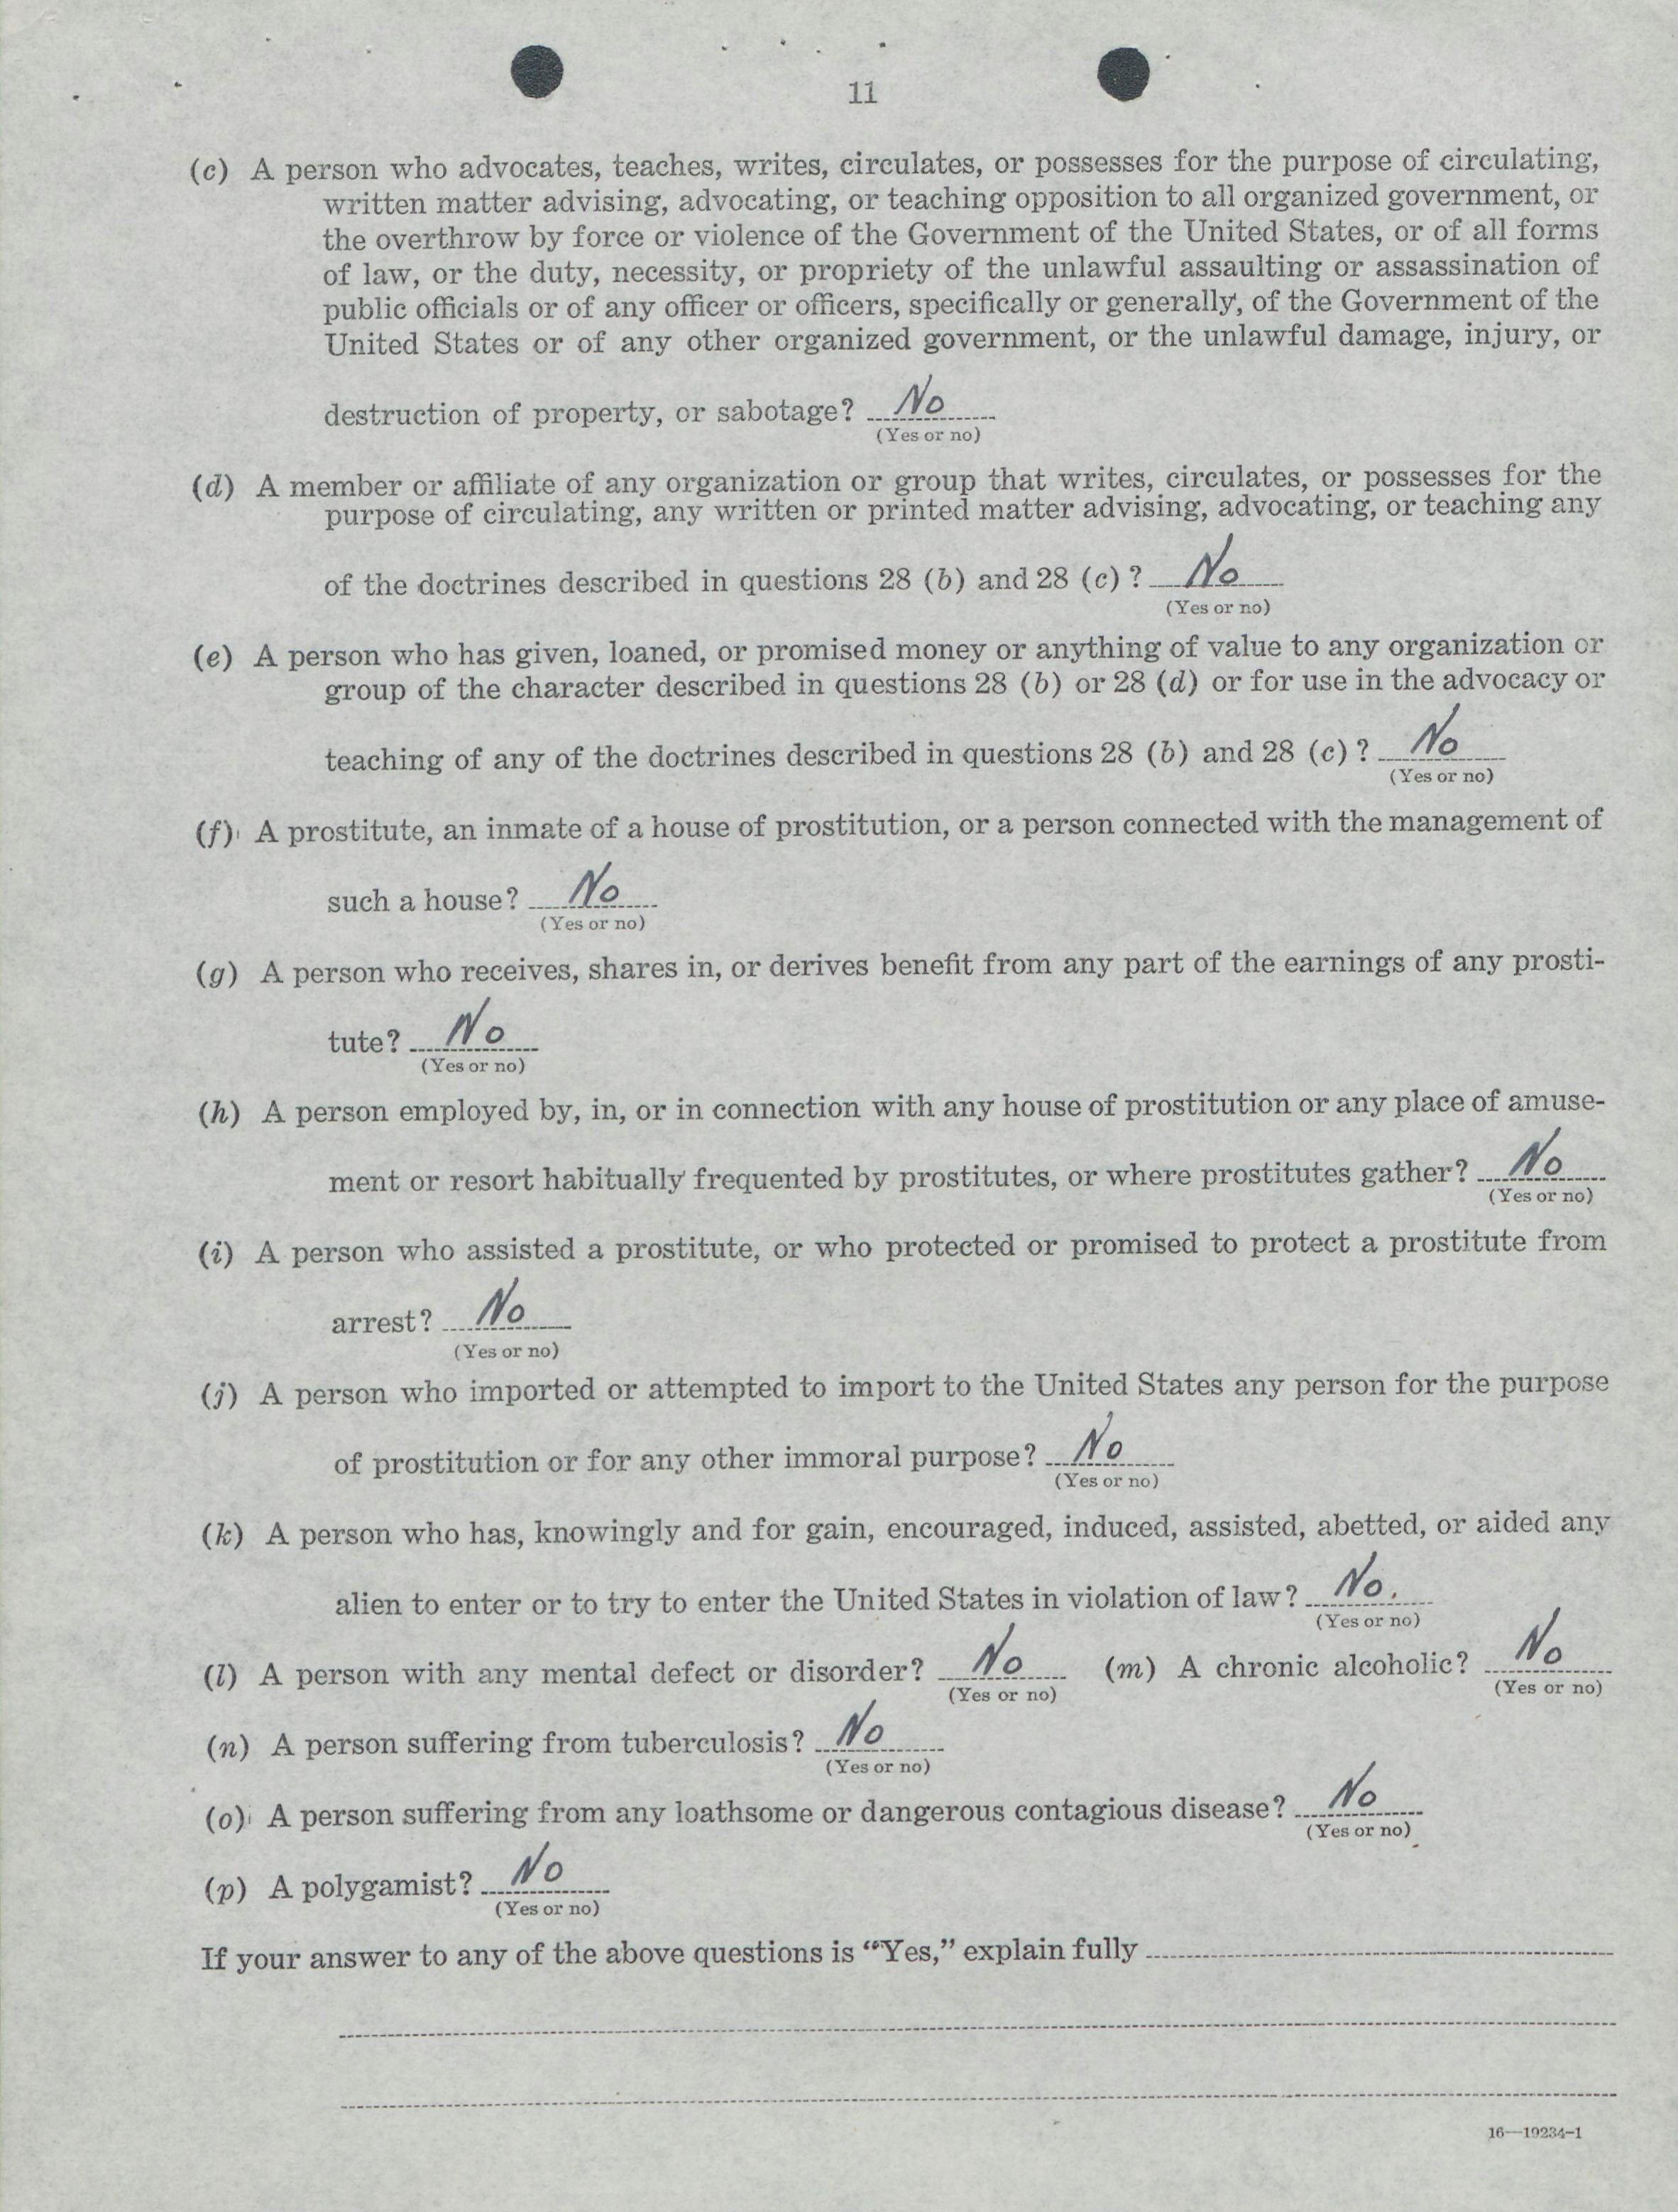 11
(c) A person who advocates, teaches, writes, circulates, or possesses for the purpose of circulating,
written matter advising, advocating, or teaching opposition to all organized government, or
the overthrow by force or violence of the Government of the United States, or of all forms
of law, or the duty, necessity, or propriety of the unlawful assaulting or assassination of
public officials or of any officer or officers, specifically or generally, of the Government of the
United States or of any other organized government, or the unlawful damage, injury, or
destruction of property, or sabotage? No
(Yes or no)
(d) A member or affiliate of any organization or group that writes, circulates, or possesses for the
purpose of circulating, any written or printed matter advising, advocating, or teaching any
of the doctrines described in questions 28 (b) and 28 (c)? No
(Yes or no)
(e) A person who has given, loaned, or promised money or anything of value to any organization or
group of the character described in questions 28 (b) or 28 (d) or for use in the advocacy or
teaching of any of the doctrines described in questions 28 (b) and 28 (c)? No
(Yes or no)
(f) A prostitute, an inmate of a house of prostitution, or a person connected with the management of
such a house? No
(Yes or no)
(g) A person who receives, shares in, or derives benefit from any part of the earnings of any prosti-
tute? No
(Yes or no)
(h) A person employed by, in, or in connection with any house of prostitution or any place of amuse-
ment or resort habitually frequented by prostitutes, or where prostitutes gather? No
(Yes or no)
(i) A person who assisted a prostitute, or who protected or promised to protect a prostitute from
arrest? No
(Yes or no)
(j) A person who imported or attempted to import to the United States any person for the purpose
of prostitution or for any other immoral purpose? No
(Yes or no)
(k) A person who has, knowingly and for gain, encouraged, induced, assisted, abetted, or aided any
alien to enter or to try to enter the United States in violation of law? No.
(Yes or no)
(l) A person with any mental defect or disorder? No (m) A chronic alcoholic? No
(Yes or no) (Yes or no)
(n) A person suffering from tuberculosis? No
(Yes or no)
(o) A person suffering from any loathsome or dangerous contagious disease? No
(Yes or no)
(p) A polygamist? No
(Yes or no)
If your answer to any of the above questions is "Yes," explain fully
16—19234-1